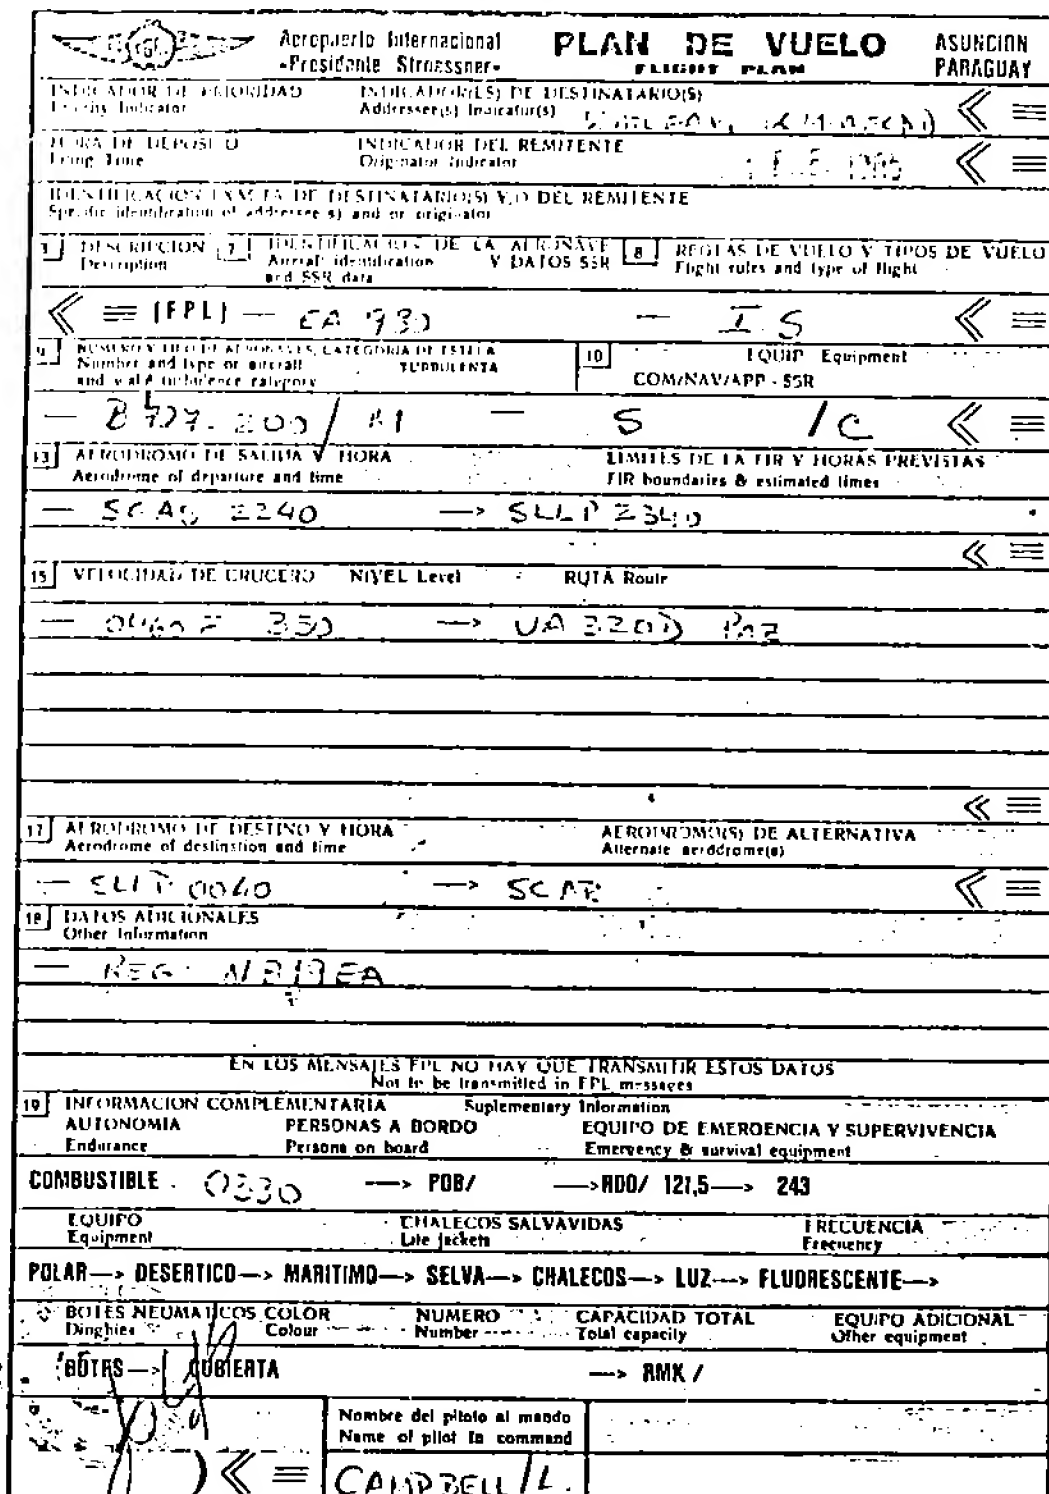 Aeropuerto Internacional
-Presidente Stroessner-
PLAN DE VUELO
FLIGHT PLAN
ASUNCION
PARAGUAY
INDICADOR DE PRIORIDAD
Priority Indicator
INDICADOR(ES) DE DESTINATARIO(S)
Addressee(s) Indicator(s)
HORA DE DEPOSITO
Filing Time
INDICADOR DEL REMITENTE
Originator Indicator
1985
IDENTIFICACION EXACTA DE DESTINATARIO(S) Y/O DEL REMITENTE
Specific identification of addressee(s) and or originator
3 DESCRIPCION
Description
7 IDENTIFICACION DE LA AERONAVE
Aircraft identification Y DATOS SSR
and SSR data
8 REGLAS DE VUELO Y TIPOS DE VUELO
Flight rules and type of flight
≪ ≡ (FPL) — EA 980 — I S ≪ ≡
9 NUMERO Y TIPO DE AERONAVES, CATEGORIA DE ESTELA
Number and type or aircraft TURBULENTA
and wake turbulence category
10 EQUIP Equipment
COM/NAV/APP - SSR
— B 727-200/M — S /C ≪ ≡
13 AERODROMO DE SALIDA Y HORA
Aerodrome of departure and time
LIMITES DE LA FIR Y HORAS PREVISTAS
FIR boundaries & estimated times
— SGAS 2240 —> SLLP 2340
≪ ≡
15 VELOCIDAD DE CRUCERO NIVEL Level RUTA Route
— 0460 F 350 —> UA 320D PAZ
≪ ≡
17 AERODROMO DE DESTINO Y HORA
Aerodrome of destination and time
AERODROMO(S) DE ALTERNATIVA
Alternate aerddrome(s)
— SLLP 0040 —> ≪ ≡
18 DATOS ADICIONALES
Other Information
— REG. N819EA
EN LOS MENSAJES FPL NO HAY QUE TRANSMITIR ESTOS DATOS
Not to be transmitted in FPL messages
19 INFORMACION COMPLEMENTARIA Suplementary Information
AUTONOMIA PERSONAS A BORDO EQUIPO DE EMERGENCIA Y SUPERVIVENCIA
Endurance Persons on board Emergency & survival equipment
COMBUSTIBLE 0330 —> POB/ —>RDO/ 121,5—> 243
EQUIPO CHALECOS SALVAVIDAS FRECUENCIA
Equipment Life jackets Frecuency
POLAR—> DESERTICO—> MARITIMO—> SELVA—> CHALECOS—> LUZ—> FLUORESCENTE—>
BOTES NEUMATICOS COLOR NUMERO CAPACIDAD TOTAL EQUIPO ADICIONAL
Dinghies Colour Number Total capacity Other equipment
BOTES—> CUBIERTA —> RMK /
Nombre del piloto al mando
Name of pilot in command
≪ ≡ CAMPBELL /L.